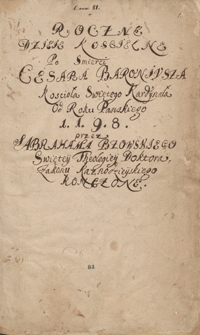 Tom II.
ROCZNE
DZIEIE KOSCIELNE
Po Smierci
CESARA BARONIUSZA
Kościoła Swiętego Kardynała
Od Roku Pańskiego
1198.
przez
ABRAHAMA BZOWSKIEGO
Swiętey Theologiey Doktora,
Zakonu Kaznodzieyskiego
KONCZONE.